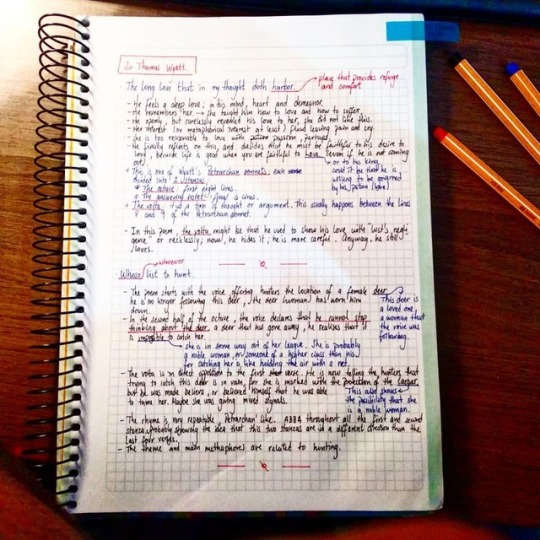 Sir Thomas Wyatt.
- The long love that in my thought doth harbor → place that provides refuge
and comfort
- He feels a deep love; in his mind, heart and demeanor.
- He remembers her → she taught him how to love and how to suffer.
- He openly, but carelessly revealed his love to her, she did not like this.
- Her retreat (or metaphorical retreat at least) fled leaving pain and cry.
- She is too reasonable to love with passion, perhaps.
- He finally reflects on this, and decides that he must be faithful to his desire to
love, because life is good when you are faithful to love (even if he is not coming
out)
→ or to his king,
could it be that he is
willing to be governed
by his desire (love)
- This is one of Wyatt's Petrarchan sonnets, each
divided into 2 stanzas
The octave: first eight lines.
The answering sestet: final 6 lines.
- The volta: it's a turn of thought or argument. This usually happens between the lines
8 and 9 of the Petrarchan sonnet.
- In this poem, the volta might be that he used to show his love with "lust's negli-
gence" or recklessly; now, he hides it; he is more careful. Anyway, he still
loves.
whoever
Whoso list to hunt.
- The poem starts with the voice offering hunters the location of a female deer
he is no longer following this deer, the deer (woman) has worn him
down.
This deer is
a loved one,
a woman that
the voice was
following.
- In the second half of the octave, the voice declares that he cannot stop
thinking about the deer, a deer that has gone away, he realises that it
is impossible to catch her.
→ she is in some way out of her league. She is probably
a noble woman, or someone of a higher class than his
for catching her is like holding the air with a net.
- The volta is in direct opposition to the first verse. He is now telling the hunters that
trying to catch this deer is in vain, for she is marked with the protection of the Caesar
but he was made believe, or believed himself that he was able
to tame her. Maybe she was giving mixed signals.
This also shows
the possibility that she
is a noble woman.
- The rhyme is very repeatable 'Petrarchan' like. ABBA throughout all the first and second
stanza, probably showing the idea that this two stanzas are in a different direction than the
last four verses.
- The theme and main methaphores are related to hunting.